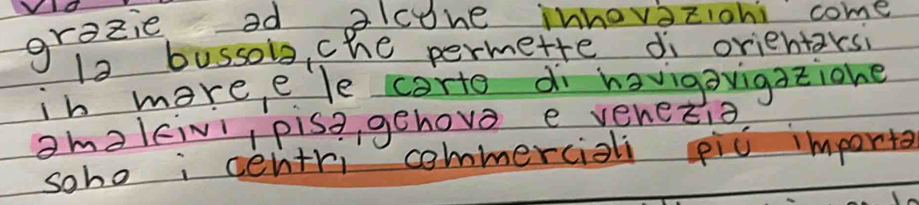 grazie ad alcune innovazioni come
la bussola, che permette di orientarsi
in mare, e le carte di navigavigazione
amalfivi, pisa, genova e venezia
sono i centri commerciali più importa